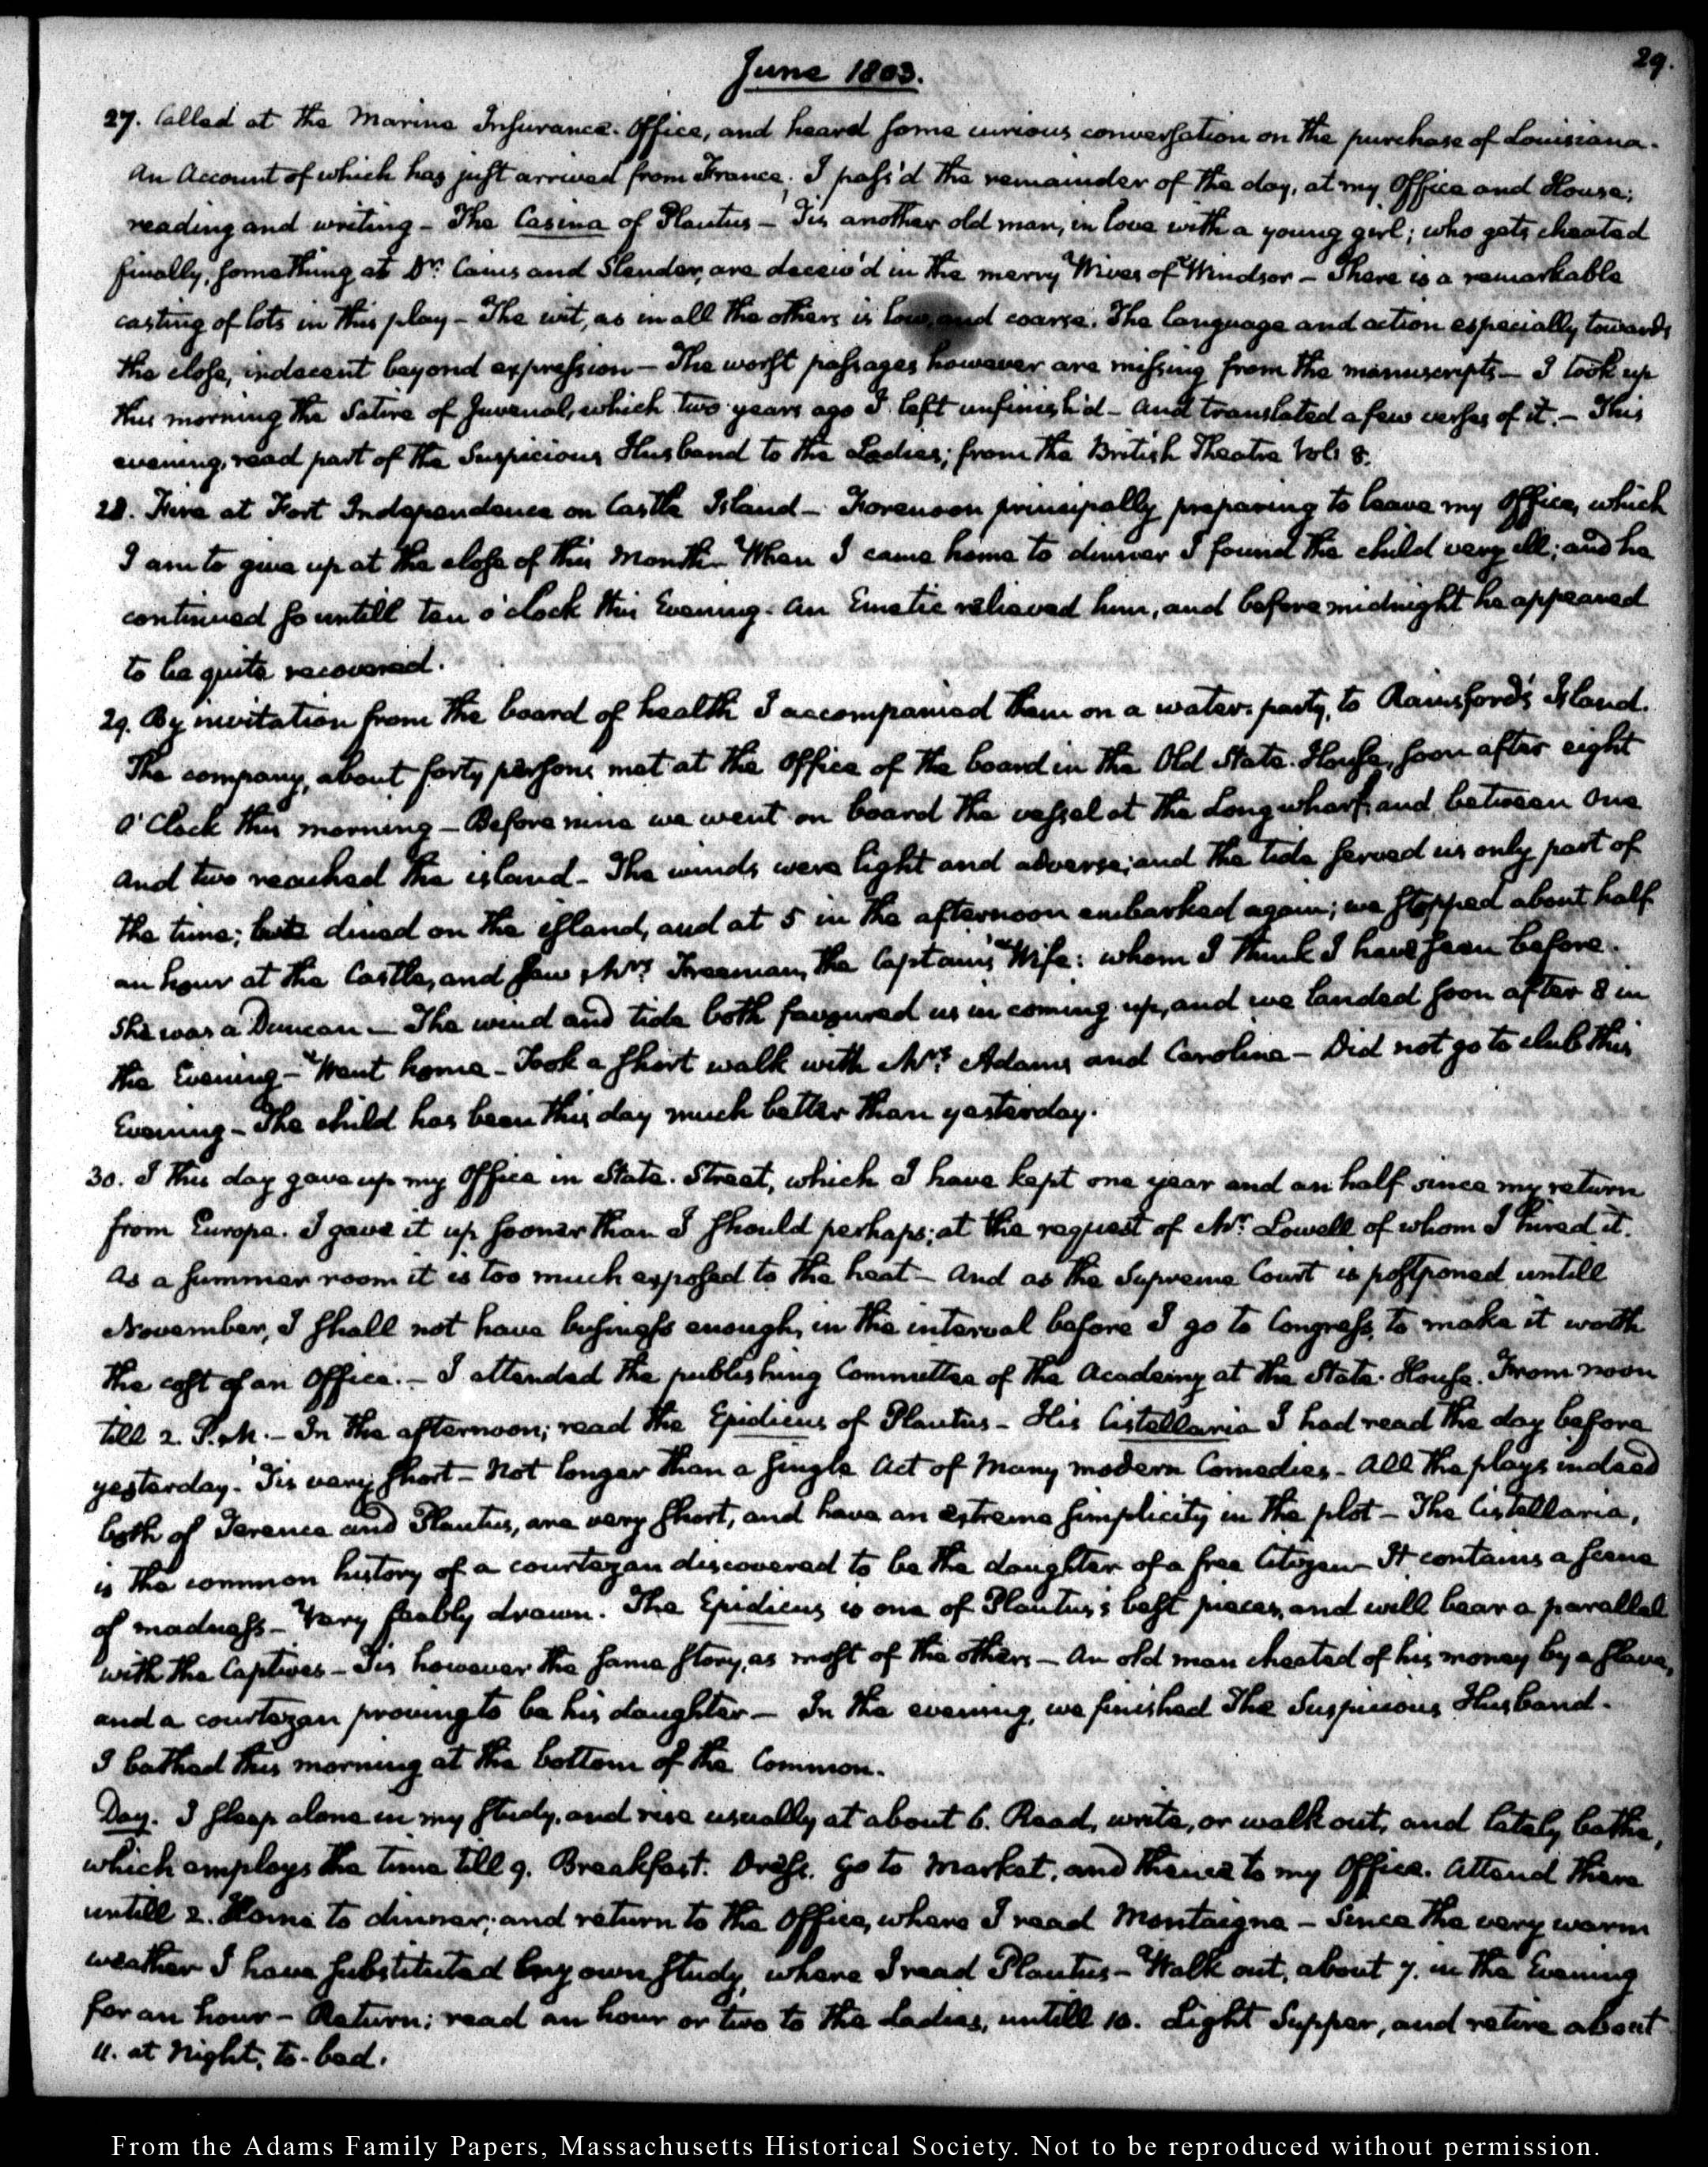 29.
June 1803.
27. Called at the Marine Insurance Office, and heard some curious conversation on the purchase of Louisiana.
An Account of which has just arrived from France; I pass'd the remainder of the day, at my Office and House;
reading and writing - The Casina of Plautus - Tis another old man, in love with a young girl; who gets cheated
finally, something as Dr. Caius and Slender, are deceiv'd in the merry Wives of Windsor - There is a remarkable
casting of lots in this play - The wit, as in all the others is low, and coarse. The language and action especially towards
the close, indecent beyond expression - The worst passages however are missing from the manuscripts - I took up
this morning the Satire of Juvenal, which two years ago I left unfinish'd - And translated a few verses of it. - This
evening, read part of the Suspicious Husband to the Ladies; from the British Theatre Vol: 8.
28. Fire at Fort Independence on Castle Island - Forenoon principally preparing to leave my Office, which
I am to give up at the close of this Month - When I came home to dinner I found the child very ill; and he
continued so untill ten o'clock this Evening. An Emetic relieved him, and before midnight he appeared
to be quite recovered.
29. By invitation from the board of health I accompanied them on a water-party, to Rainsford's Island.
The company, about forty persons met at the Office of the board in the Old State-House, soon after eight
O'Clock this morning - Before nine we went on board the vessel at the Long wharf, and between one
and two reached the island - The winds were light and adverse; and the tide served us only part of
the time; dined on the island, and at 5 in the afternoon embarked again; we stopped about half
an hour at the Castle, and saw Mrs. Freeman, the Captain's Wife: whom I think I have seen before.
She was a Duncan - The wind and tide both favoured us in coming up, and we landed soon after 8 in
the Evening - Went home - Took a short walk with Mrs. Adams and Caroline - Did not go to club this
Evening - The child has been this day much better than yesterday.
30. I this day gave up my Office in State-Street, which I have kept one year and an half since my return
from Europe. I gave it up sooner than I should perhaps; at the request of Mr. Lowell of whom I hired it.
As a summer room it is too much exposed to the heat - And as the Supreme Court is postponed untill
November, I shall not have business enough, in the interval before I go to Congress, to make it worth
the cost of an Office. - I attended the publishing Committee of the Academy at the State-House. From noon
till 2. P.M. - In the afternoon; read the Epidicus of Plautus - His Cistellaria I had read the day before
yesterday. Tis very short - Not longer than a single Act of Many modern Comedies - All the plays indeed
both of Terence and Plautus, are very short, and have an extreme simplicity in the plot - The Cistellaria,
is the common history of a courtezan discovered to be the daughter of a free Citizen - It contains a scene
of madness - Very feebly drawn. The Epidicus is one of Plautus's best pieces, and will bear a parallel
with the Captives - Tis however the same story, as most of the others - An old man cheated of his money by a slave,
and a courtezan proving to be his daughter - In the evening, we finished The Suspicious Husband.
I bathed this morning at the bottom of the Common.
Day. I sleep alone in my study, and rise usually at about 6. Read, write, or walk out, and lately bathe,
which employs the time till 9. Breakfast. Dress. Go to Market, and thence to my Office. Attend there
untill 2. Home to dinner; and return to the Office, where I read Montaigne - Since the very warm
weather I have substituted my own study, where I read Plautus - Walk out, about 7. in the Evening
for an hour - Return; read an hour or two to the Ladies, untill 10. Light Supper, and retire about
11. at Night, to-bed.
From the Adams Family Papers, Massachusetts Historical Society. Not to be reproduced without permission.